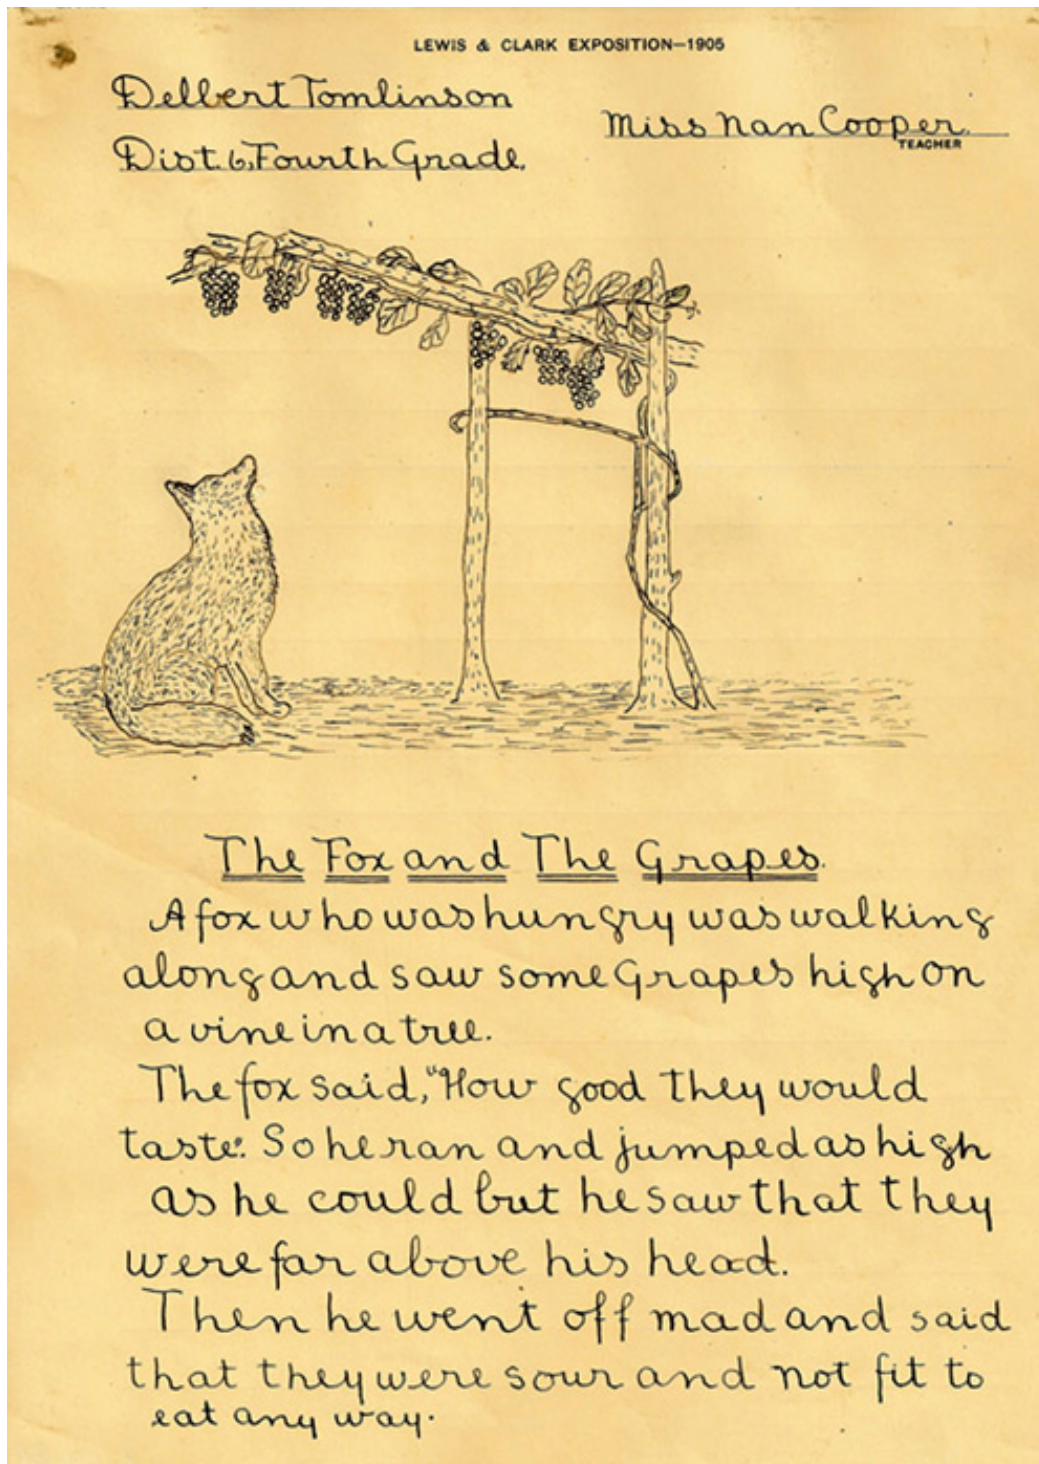 LEWIS & CLARK EXPOSITION—1905
Delbert Tomlinson
Miss Nan Cooper.
TEACHER
Dist. 6, Fourth Grade.
The Fox and The Grapes.
A fox who was hungry was walking
along and saw some Grapes high on
a vine in a tree.
The fox said, "How good they would
taste." So he ran and jumped as high
as he could but he saw that they
were far above his head.
Then he went off mad and said
that they were sour and not fit to
eat any way.